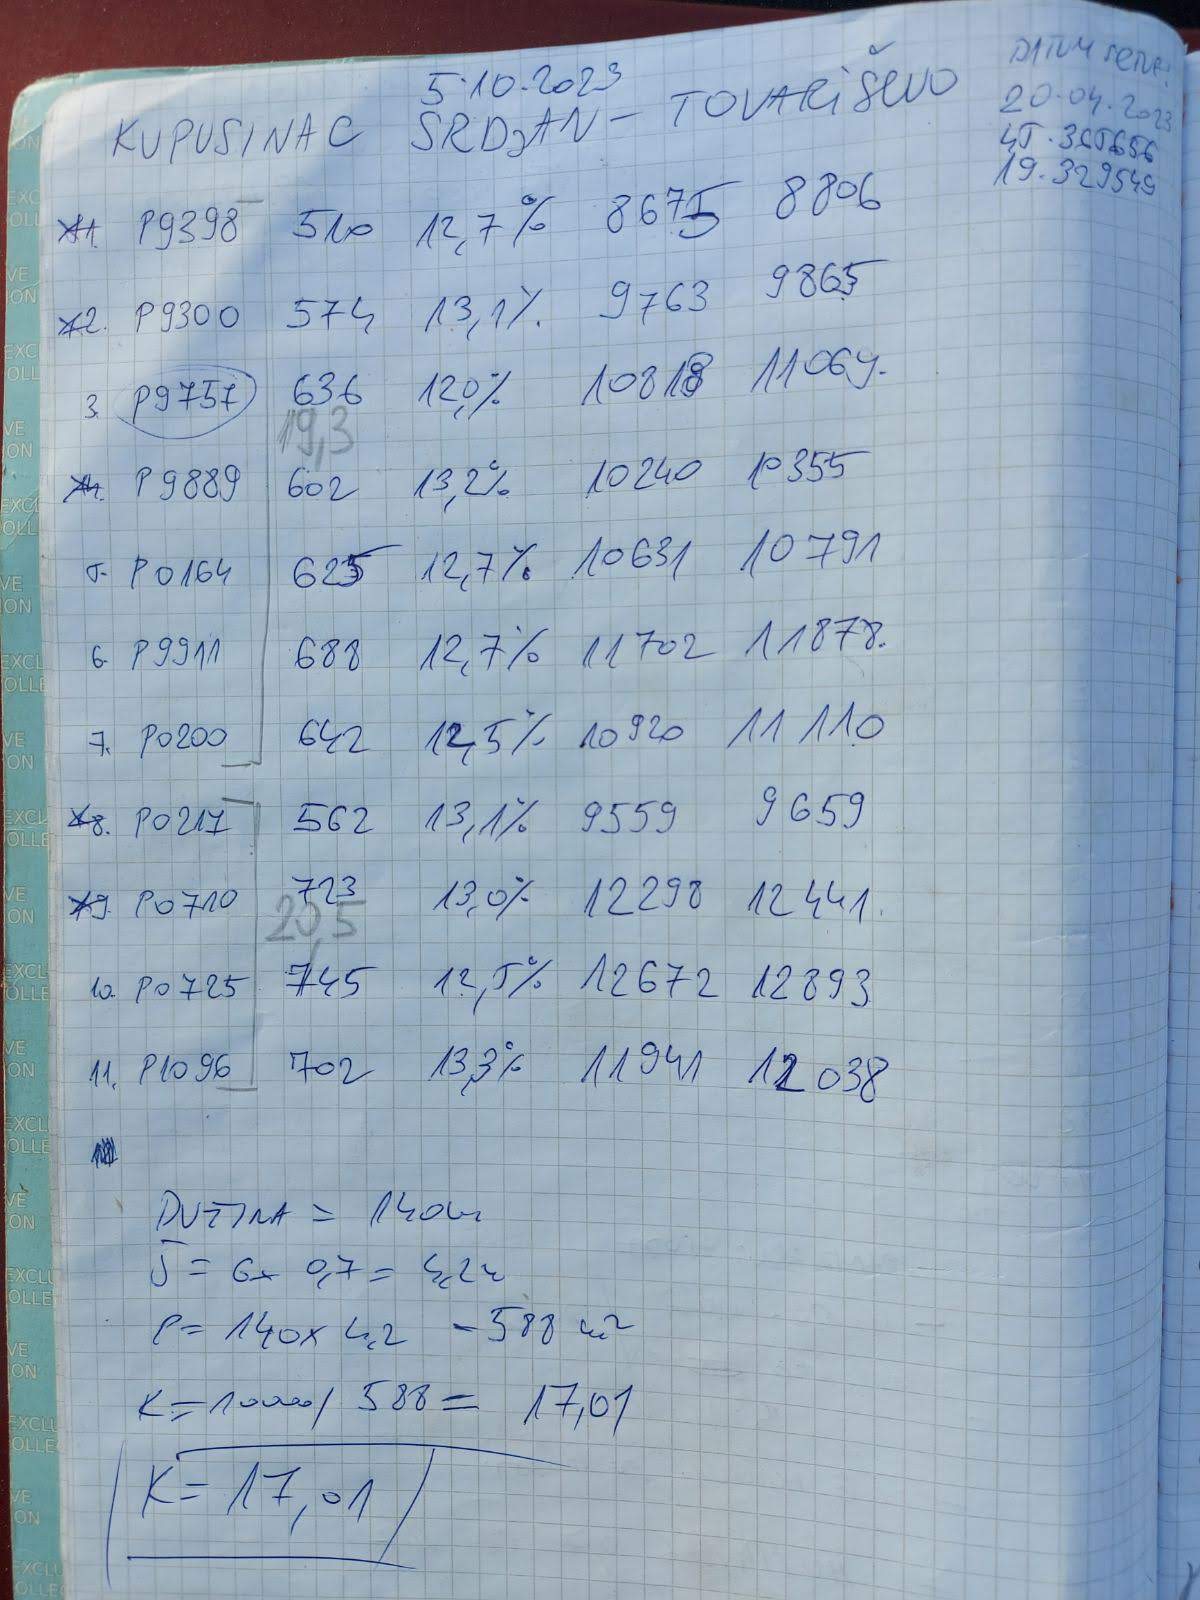 5.10.2023
KUPUSINAC SRDJAN - TOVARIŠEVO
DATUM SETVE:
20.04.2023
45.365656
19.329549
1. P9398 510 12,7% 8675 8806
2. P9300 574 13,1% 9763 9865
3. P9757 636 12,0% 10818 11064.
19,3
4. P9889 602 13,2% 10240 10355
5. P0164 625 12,7% 10631 10791
6. P9911 688 12,7% 11702 11878.
7. P0200 642 12,5% 10920 11110
8. P0217 562 13,1% 9559 9659
9. P0710 723 13,0% 12298 12441.
20,5
10. P0725 745 12,5% 12672 12893
11. P1096 702 13,3% 11941 12038
DUŽINA = 140m
Š = 6x 0,7 = 4,2m
P= 140x 4,2 - 588 m²
K=10000/ 588 = 17,01
K= 17,01